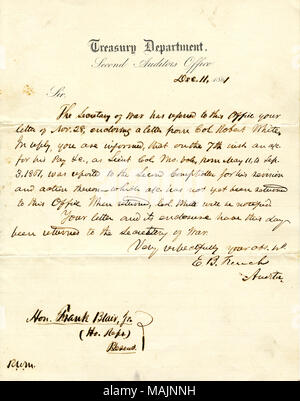 Treasury Department.
Second Auditor's Office
Dec. 11, 1861
Sir.
The Secretary of War has referred to this Office your
letter of Nov. 28, enclosing a letter from Col. Robert White,
In reply, you are informed that on the 7th inst. an a/c
for his Pay &c., as Lieut. Col. Mo. Vols, from May 11, to Sep.
3, 1861, was reported to the Second Comptroller for his revision
and action thereon, which a/c has not yet been returned
to this Office. When returned, Col. White will be notified
Your letter and its enclosure have this day
been returned to the Secretary of War.
Very respectfully your obt. svt.
E. B. French
Auditor
Hon. Frank Blair, Jr.
(Ho. Reps)
Present
alamy
Image ID: MAJNNH
www.alamy.com